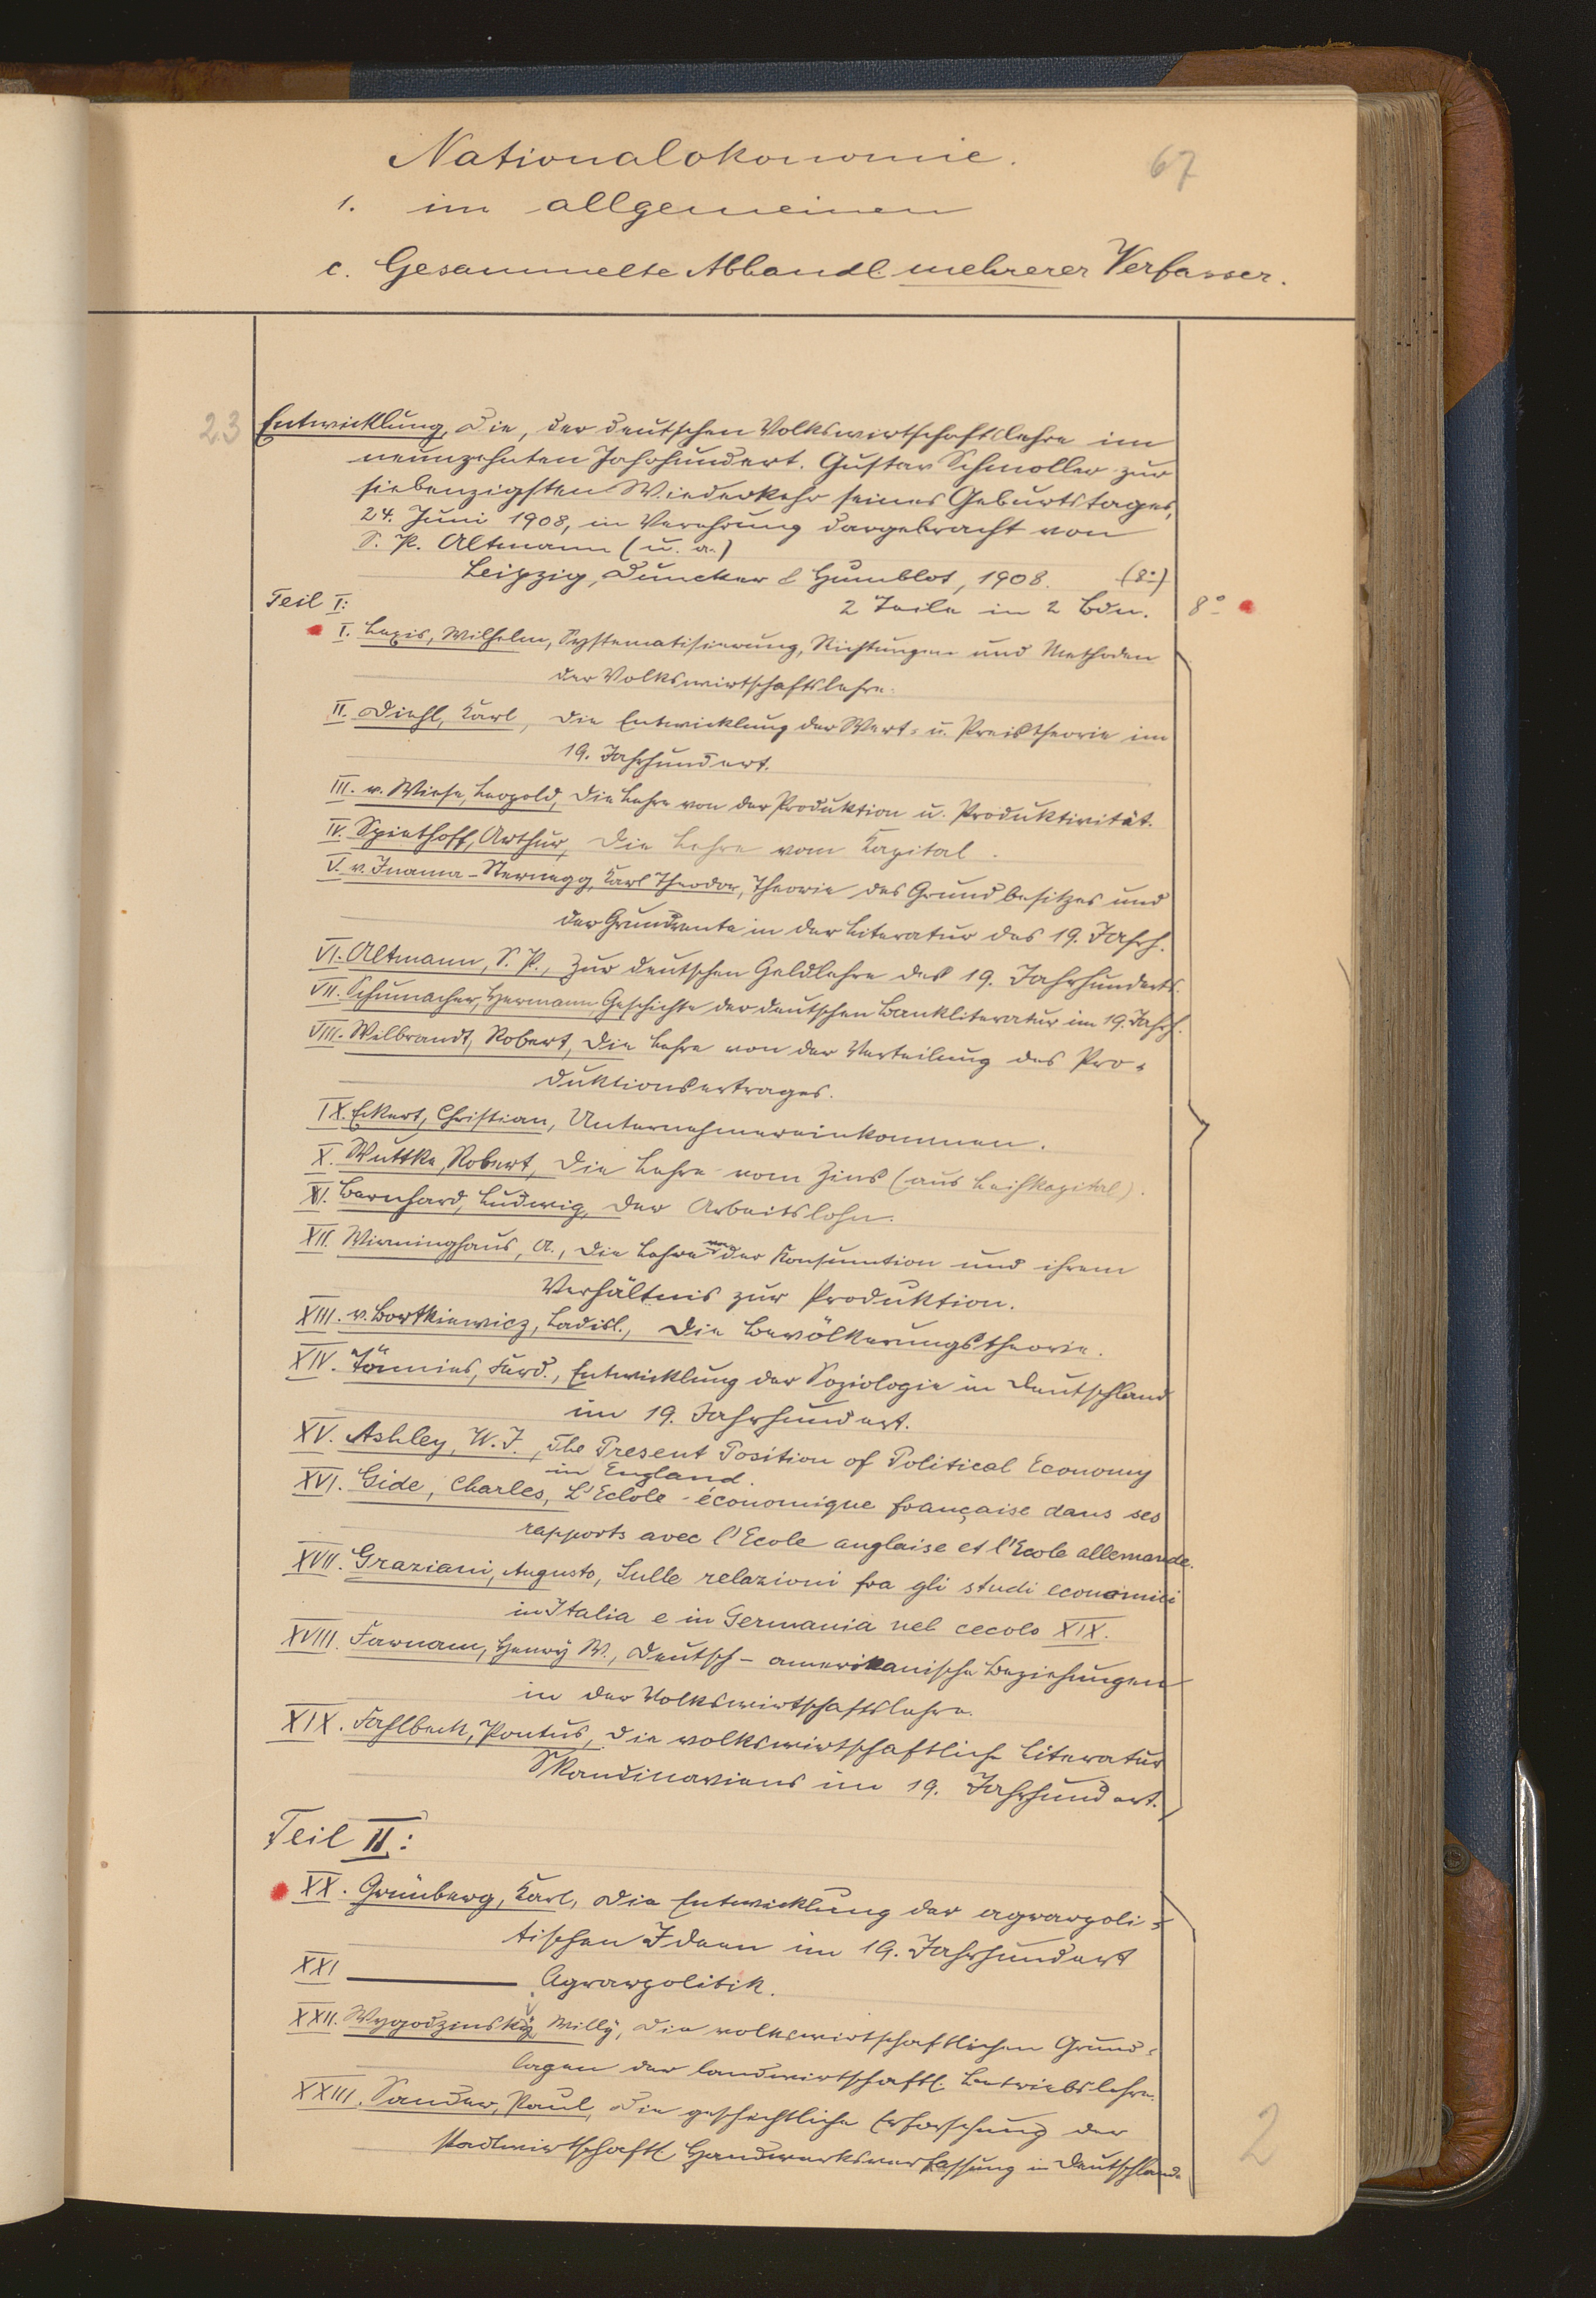 Nationalokonomie.
67
1. im allgemeinen
c. Gesammelte Abhandl. mehrerer Verfasser.
23
Entwicklung, Die, der deutschen Volkswirtschaftslehre im
neunzehnten Jahrhundert. Gustav Schmoller zur
siebenzigsten Wiederkehr seines Geburtstages,
24. Juni 1908, in Verehrung dargebracht von
S. P. Altmann (u. a.)
Leipzig, Duncker & Humblot, 1908. (8º)
Teil I: 2 Teile in 2 Bdn. 8º
I. Lexis, Wilhelm, Systematisierung, Richtungen und Methoden
der Volkswirtschaftslehre.
II. Diehl, Karl, Die Entwicklung der Wert- u. Preistheorie im
19. Jahrhundert.
III. v. Wiese, Leopold, Die Lehre von der Produktion u. Produktivität.
IV. Spiethoff, Arthur, Die Lehre vom Kapital.
V. v. Inama-Sternegg, Karl Theodor, Theorie des Grundbesitzes und
der Grundrente in der Literatur des 19. Jahrh.
VI. Altmann, S. P., Zur deutschen Geldlehre des 19. Jahrhunderts.
VII. Schumacher, Hermann, Geschichte der deutschen Bankliteratur im 19. Jahrh.
VIII. Wilbrandt, Robert, Die Lehre von der Verteilung des Pro-
duktionsertrages.
IX. Eckert, Christian, Unternehmereinkommen.
X. Wuttke, Robert, Die Lehre vom Zins (aus Leihkapital).
XI. Bernhard, Ludwig, Der Arbeitslohn.
XII. Wirminghaus, A., Die Lehre von der Konsumtion und ihrem
Verhältnis zur Produktion.
XIII. v. Bortkiewicz, Ladisl., Die Bevölkerungstheorie.
XIV. Tönnies, Ferd., Entwicklung der Soziologie in Deutschland
im 19. Jahrhundert.
XV. Ashley, W. J., The Present Position of Political Economy
in England.
XVI. Gide, Charles, L'Eclole économique française dans ses
rapports avec l'Ecole anglaise et l'Ecole allemande.
XVII. Graziani, Augusto, Sulle relazioni fra gli studi economici
in Italia e in Germania nel cecolo XIX.
XVIII. Farnam, Henry W., Deutsch-amerikanische Beziehungen
in der Volkswirtschaftslehre.
XIX. Fahlbeck, Pontus, Die volkswirtschaftliche Literatur
Skandinaviens im 19. Jahrhundert.
Teil II:
XX. Grünberg, Karl, Die Entwicklung der agrarpoli-
tischen Ideen im 19. Jahrhundert
XXI ——— Agrarpolitik.
XXII. Wygodzinsky, Willy, Die volkswirtschaftlichen Grund-
lagen der landwirtschaftl. Betriebslehre.
XXIII. Sander, Paul, Die geschichtliche Erforschung der
stadtwirtschaftl. Handwerksverfassung in Deutschland.
2